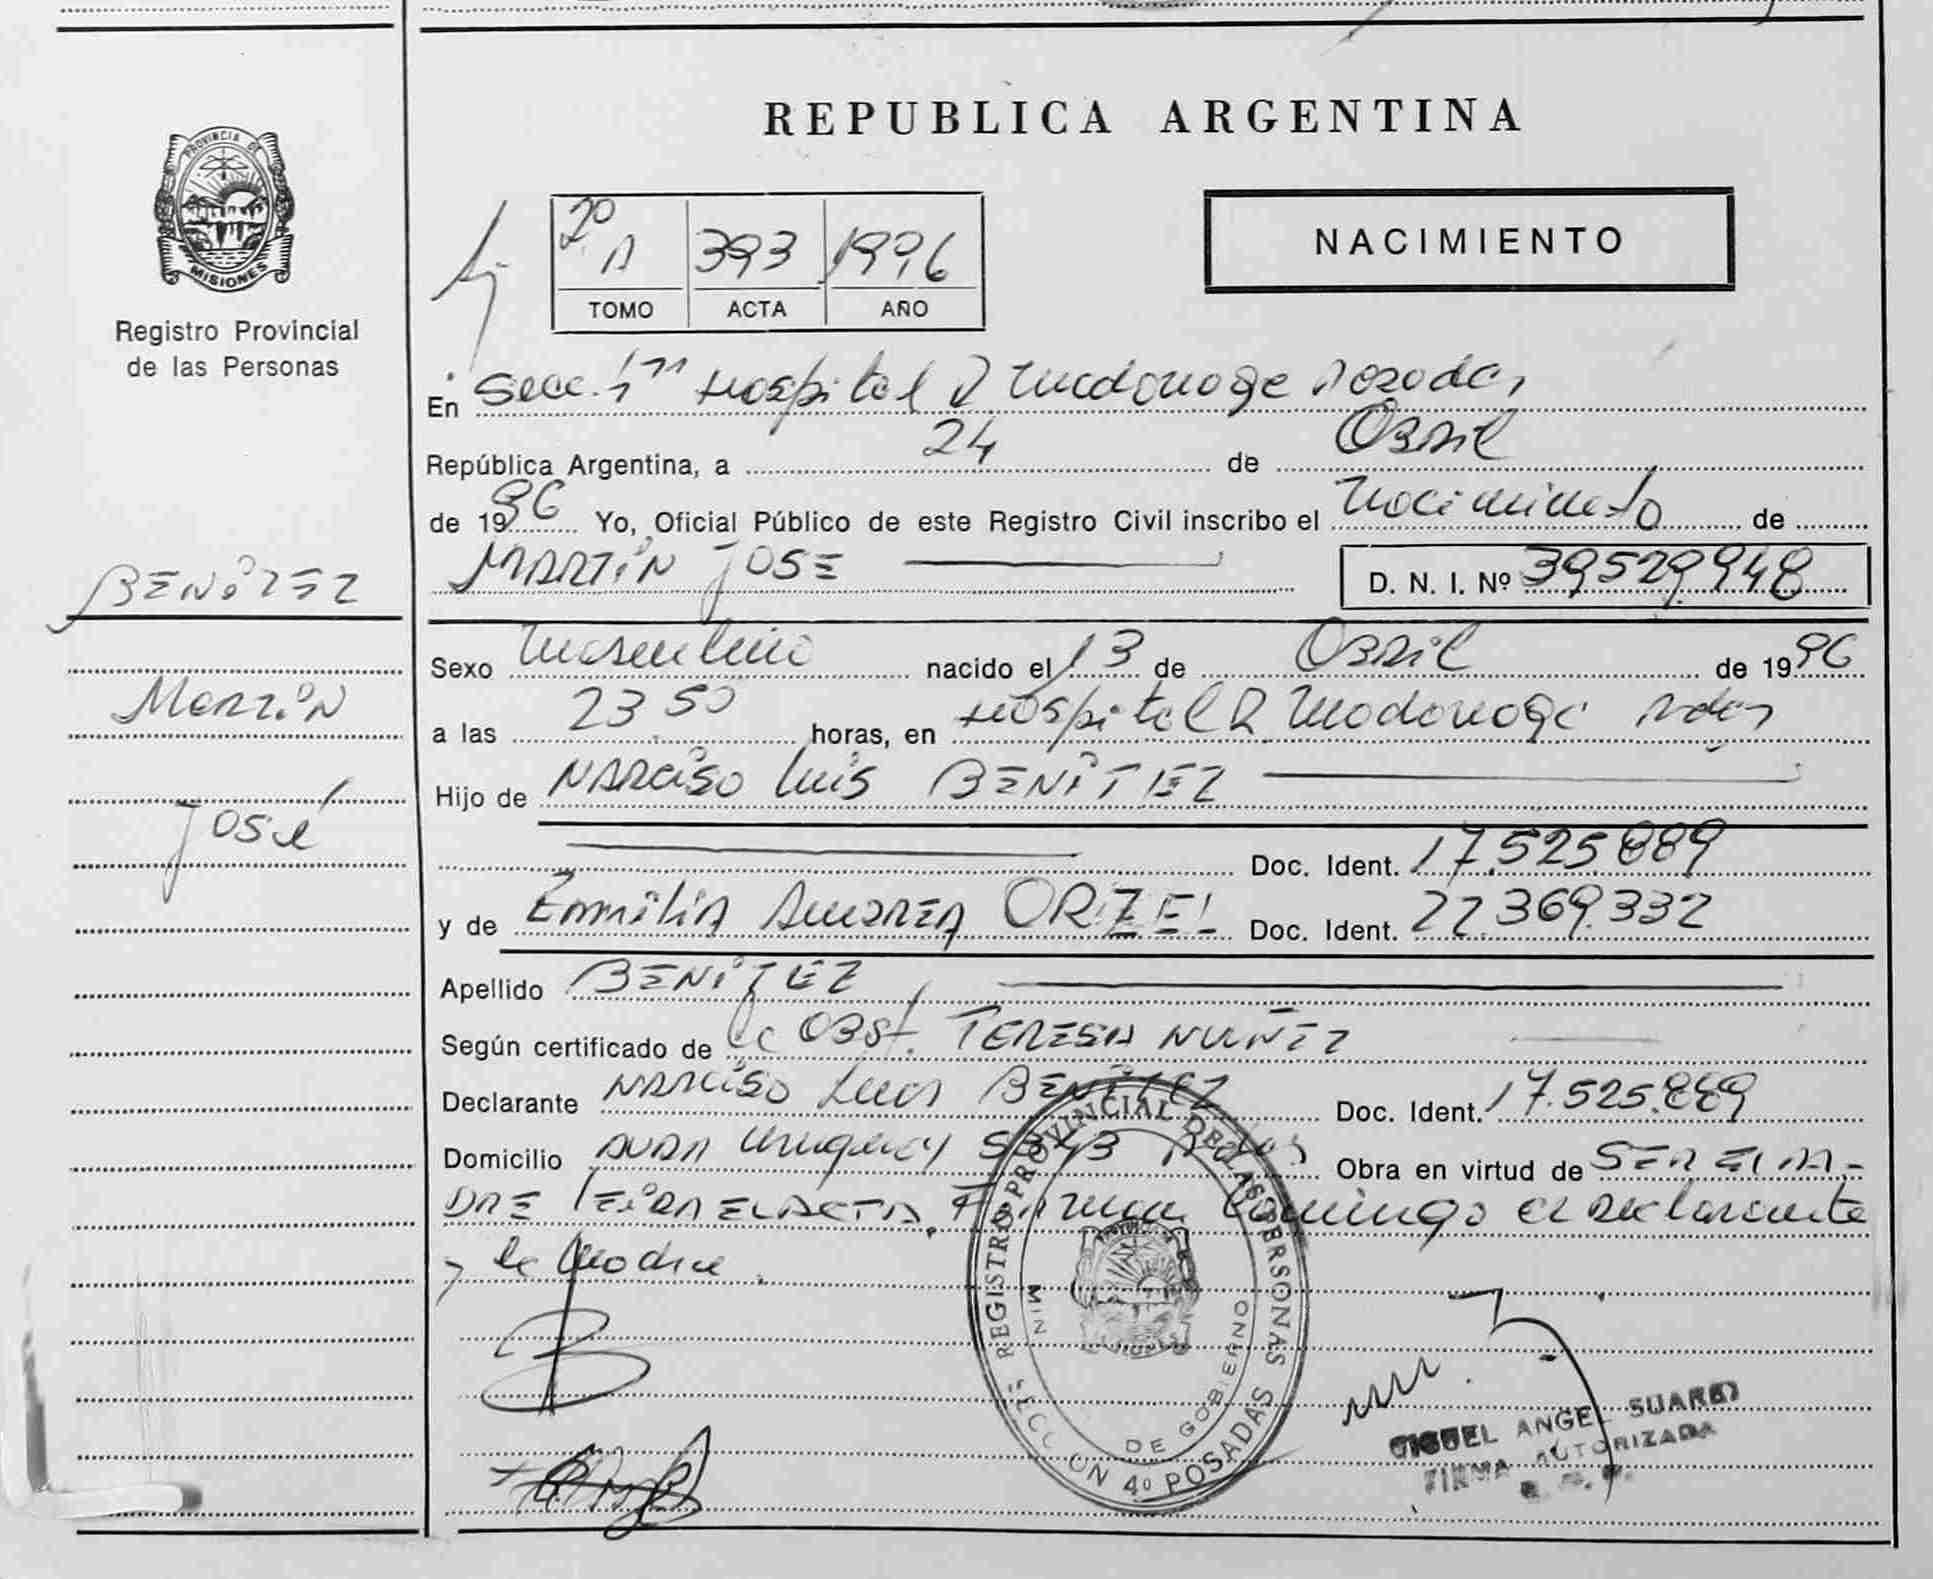 REPUBLICA ARGENTINA
PROVINCIA DE
MISIONES
Registro Provincial
de las Personas
2º A 393 1996
TOMO ACTA AÑO
NACIMIENTO
En Secc. Hospital R Madariaga Posadas
República Argentina, a 24 de Abril
de 1996 Yo, Oficial Público de este Registro Civil inscribo el Nacimiento de
MARTIN JOSE D. N. I. Nº 39529.948
BENITEZ
Sexo Masculino nacido el 13 de Abril de 1996
Martin
a las 23.50 horas, en Hospital R Madariaga Pdas
Hijo de NARCISO Luis BENITEZ
José
Doc. Ident. 17.525.889
y de Emilia Andrea ORZEL Doc. Ident. 22.369.332
Apellido BENITEZ
Según certificado de la Obst. TERESA NUÑEZ
Declarante NARCISO Luis BENITEZ Doc. Ident. 17.525.889
Domicilio Uruguay Pdas Obra en virtud de SER EL PA-
DRE Leida el acta, Firman conmigo el declarante
y la Madre.
REGISTRO PROVINCIAL DE LAS PERSONAS
MIN DE GOBIERNO
SECCION 4º POSADAS
MIGUEL ANGEL SUAREZ
FIRMA AUTORIZADA